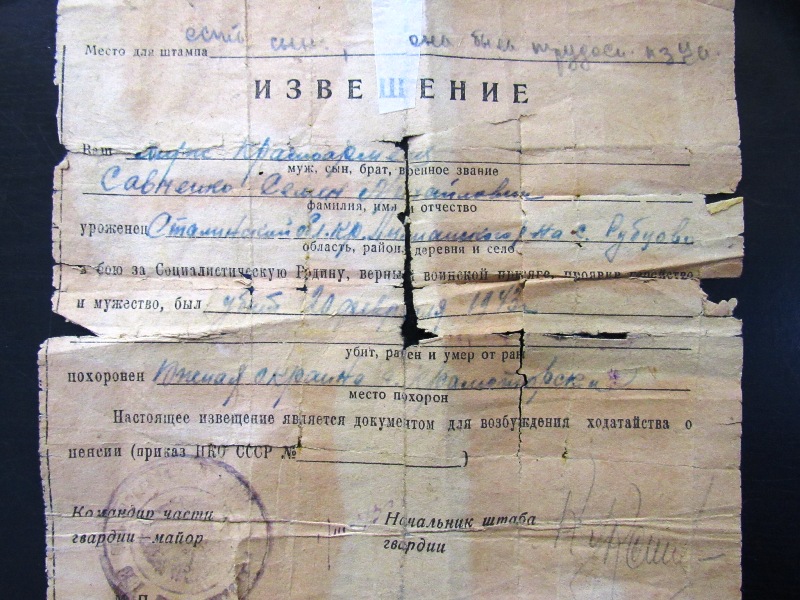 есть сын,
Место для штампа
ИЗВЕЩЕНИЕ
Ваш муж красноармеец
муж, сын, брат, военное звание
Савченко Семен Михайлович
фамилия, имя и отчество
уроженец Сталинской обл. района с. Рубцово
область, район, деревня и село
в бою за Социалистическую Родину, верный воинской присяге, проявив геройство
и мужество, был убит 20 февраля 1943
убит, ранен и умер от ран
похоронен Южная окраина Краматорска
место похорон
Настоящее извещение является документом для возбуждения ходатайства о
пенсии (приказ НКО СССР № )
Командир части
гвардии—майор
Начальник штаба
гвардии